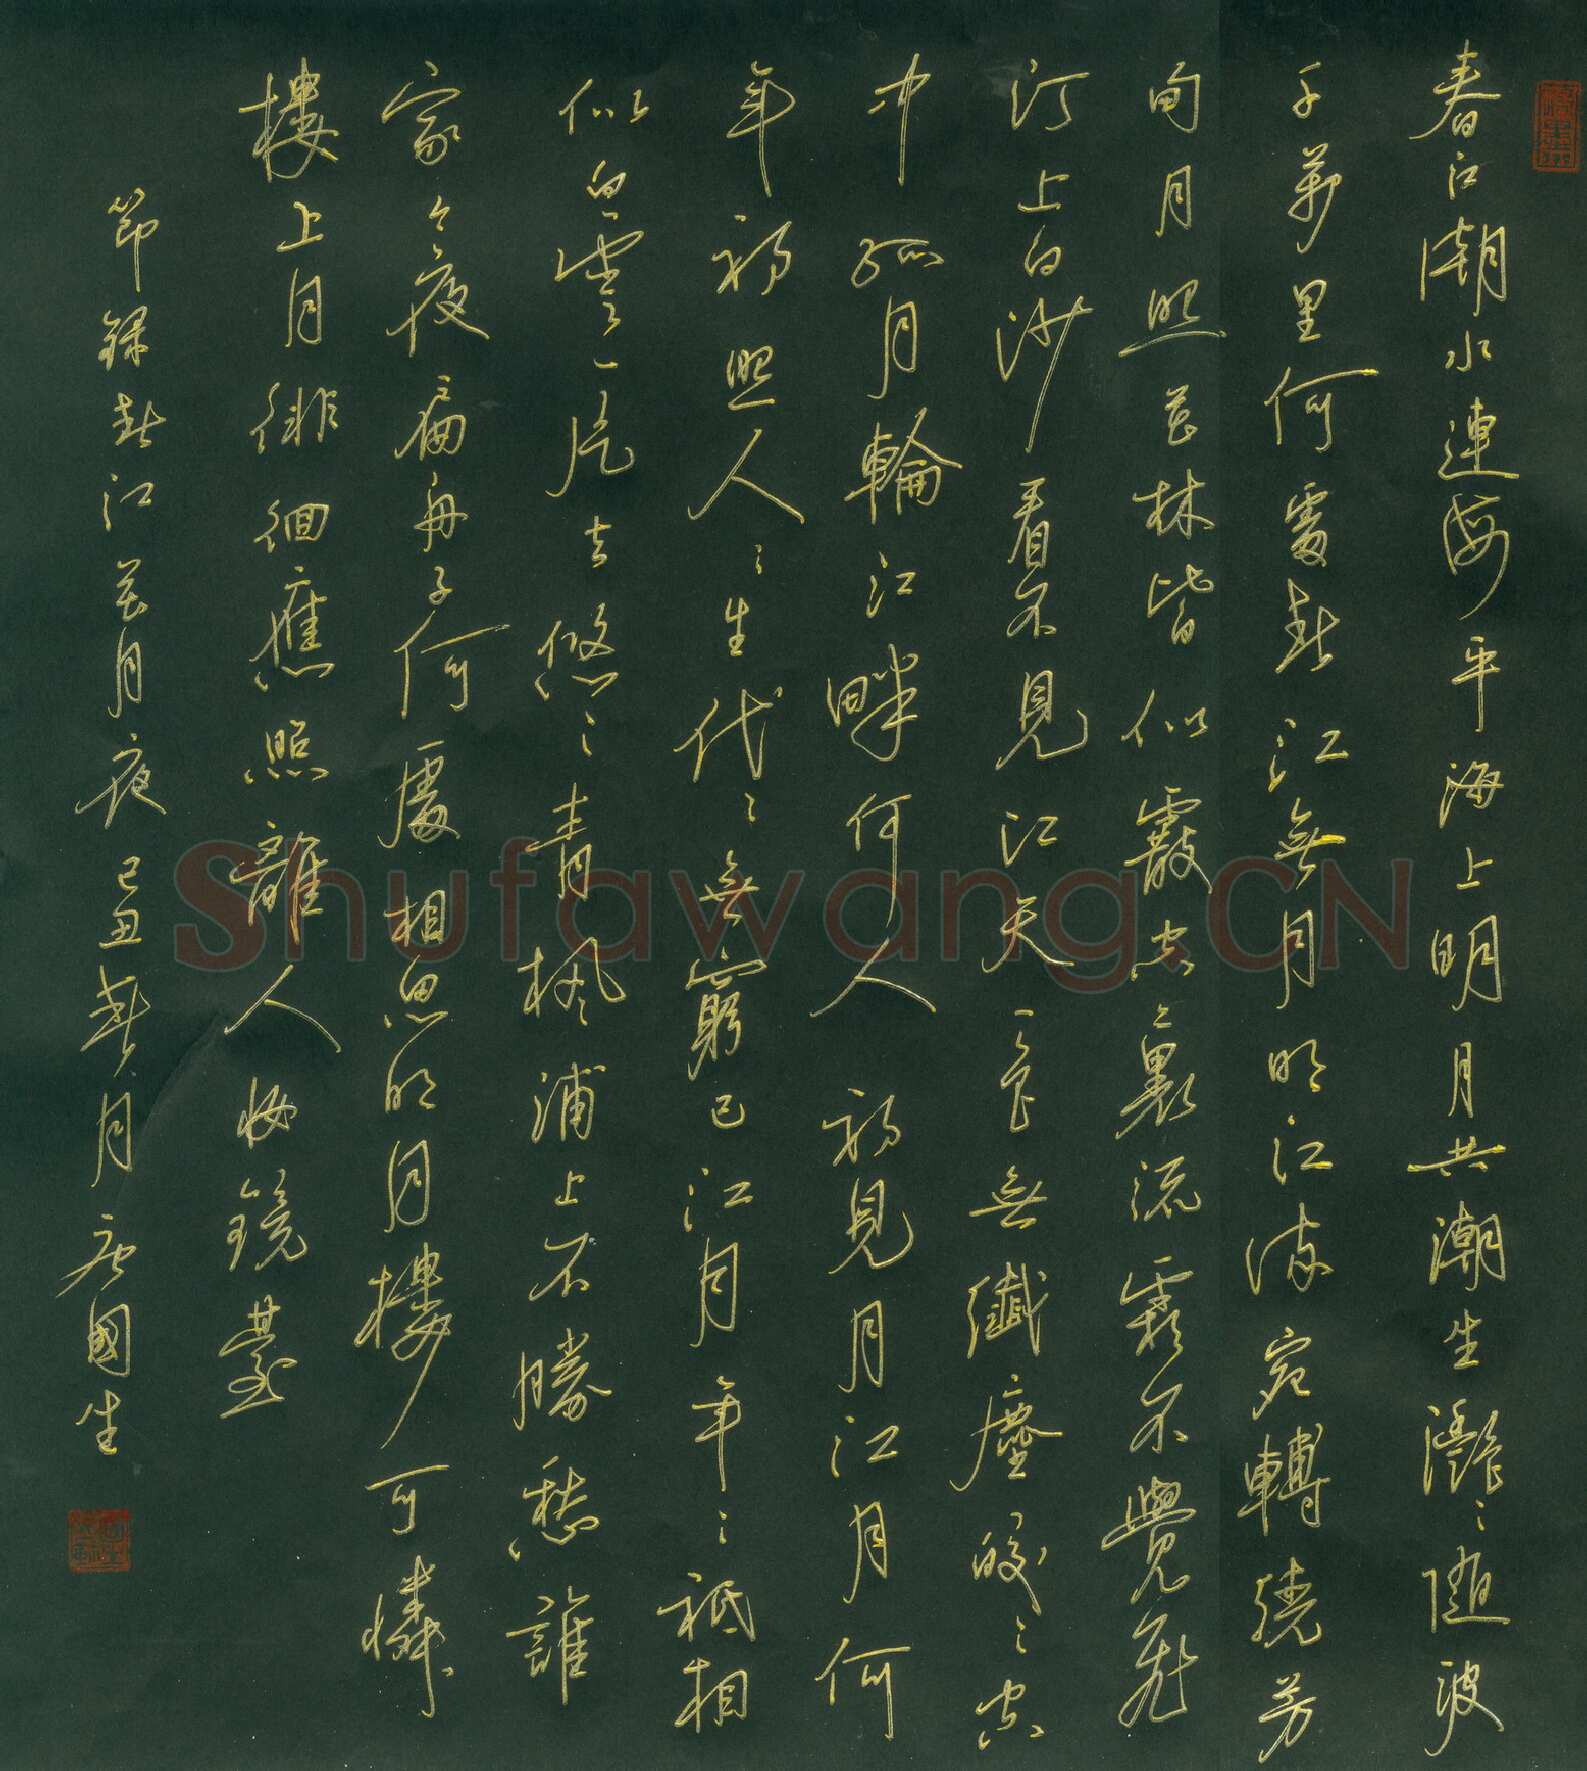 春江潮水連海平海上明月共潮生灩〻隨波
千萬里何處春江無月明江流宛轉繞芳
甸月照花林皆似霰空〻裏流霜不覺飛
汀上白沙看不見江天一色無纖塵皎〻空
中孤月輪江畔何人初見月江月何
年初照人〻生代〻無窮已江月年〻祗相
似白雲一片去悠〻青楓浦上不勝愁誰
家今夜扁舟子何處相思明月樓可憐
樓上月徘徊應照離人妝鏡臺
節錄春江花月夜己丑春月國生
Shufawang.CN